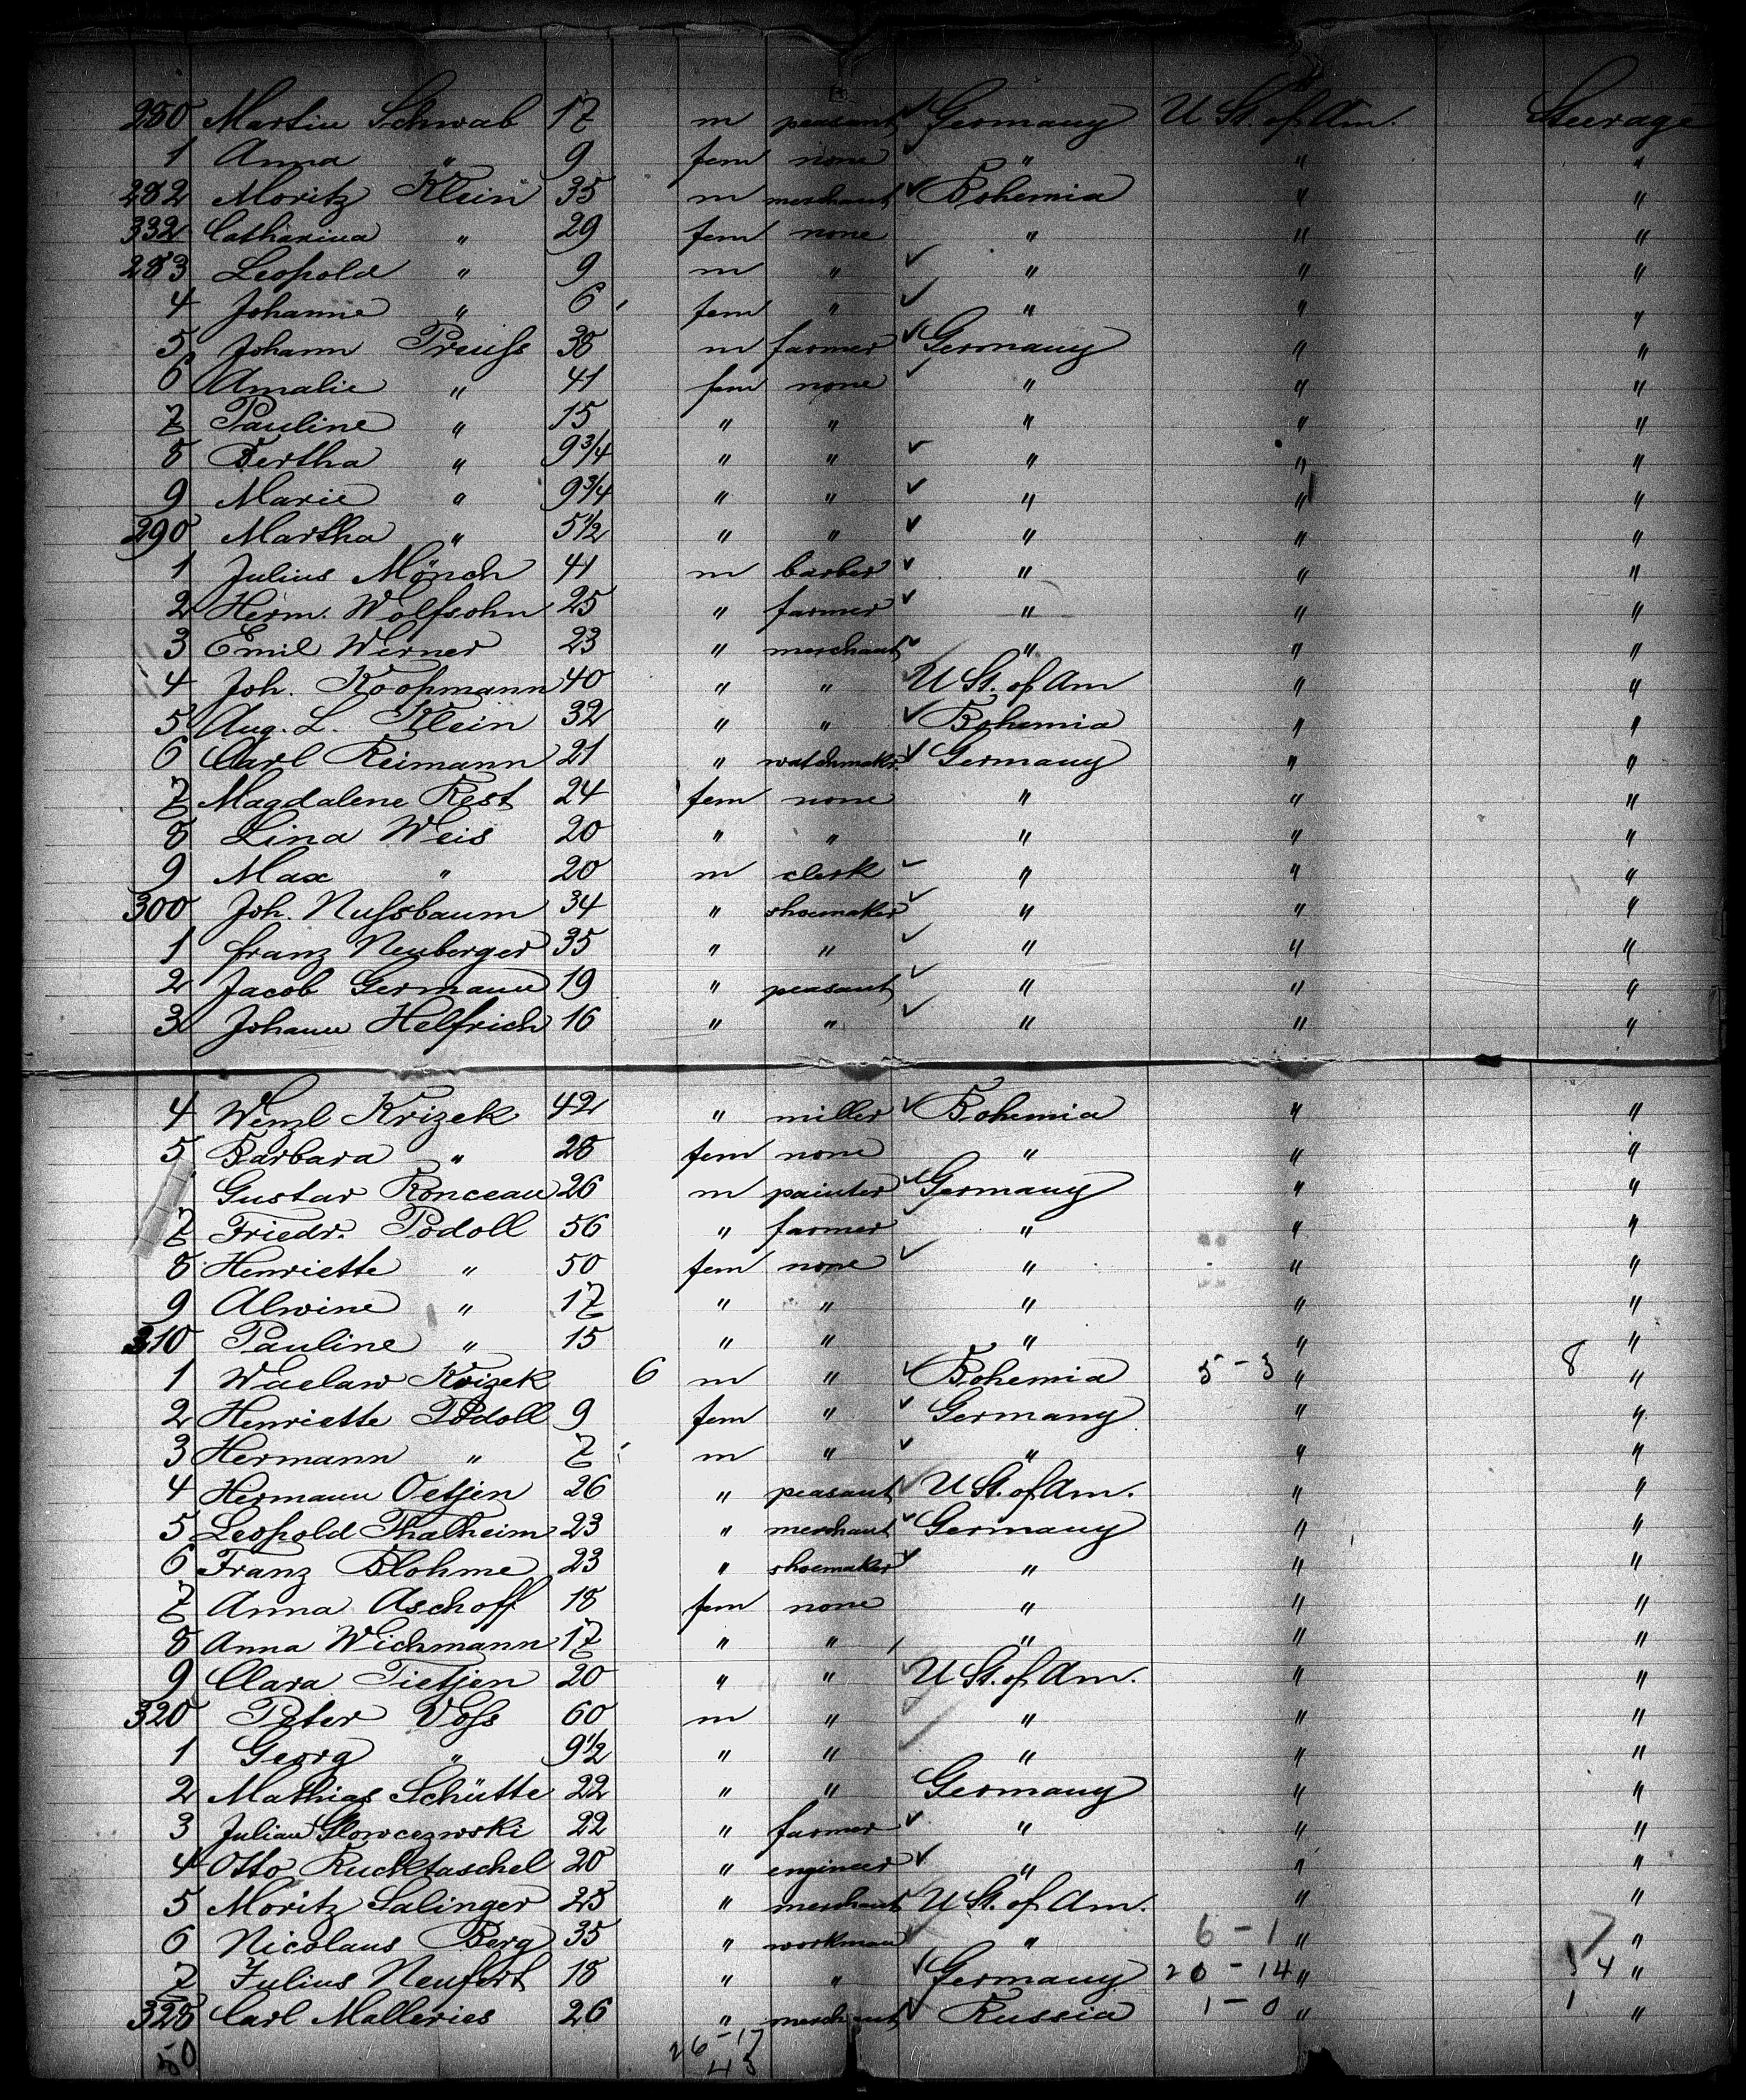 280 Martin Schwab 17 m peasant Germany U St. of Am. Steerage
1 Anna " 9 fem none " " "
282 Moritz Klein 35 m merchant Bohemia " "
332 Catharina " 29 fem none " " "
283 Leopold " 9 m " " " "
4 Johanne " 6 fem " " " "
5 Johann Preuss 38 m farmer Germany " "
6 Amalie " 41 fem none " " "
7 Pauline " 15 " " " " "
8 Bertha " 9 3/4 " " " " "
9 Marie " 9 3/4 " " " " "
290 Martha " 5 1/2 " " " " "
1 Julius Mönch 41 m barber " " "
2 Herm. Wolfsohn 25 " farmer " " "
3 Emil Werner 23 " merchant " " "
4 Joh. Koopmann 40 " " U St. of Am " "
5 Aug. L. Klein 32 " " Bohemia " "
6 Carl Reimann 21 " watchmakr. Germany " "
7 Magdalene Rest 24 fem none " " "
8 Lina Weis 20 " " " " "
9 Max " 20 m clerk " " "
300 Joh. Nussbaum 34 " shoemaker " " "
1 Franz Neuberger 35 " " " " "
2 Jacob Germann 19 " peasant " " "
3 Johann Helfrich 16 " " " " "
4 Wenzl Krizek 42 " miller Bohemia " "
5 Barbara " 28 fem none " " "
Gustav Ronceau 26 m painter Germany " "
7 Friedr. Podoll 56 " farmer " " "
8 Henriette " 50 fem none " " "
9 Alwine " 17 " " " " "
310 Pauline " 15 " " " " "
1 Waclaw Krizek 6 m " Bohemia 5 - 3 " 8 "
2 Henriette Podoll 9 fem " Germany " "
3 Hermann " 7 m " " " "
4 Hermann Oetjen 26 " peasant U St. of Am. " "
5 Leopold Thalheim 23 " merchant Germany " "
6 Franz Blohme 23 " shoemaker " " "
7 Anna Aschoff 18 fem none " " "
8 Anna Wichmann 17 " " " " "
9 Clara Tietjen 20 " " U St. of Am. " "
320 Peter Voss 60 m " " " "
1 Georg " 9 1/2 " " " " "
2 Mathias Schütte 22 " " Germany " "
3 Julian Glowczewski 22 " farmer " " "
4 Otto Rucktaschel 20 " engineer " " "
5 Moritz Salinger 28 " merchant U St. of Am. " "
6 Nicolaus Berg 35 " workman " 6 - 1 " 7 "
7 Julius Neufert 18 " " Germany 20 - 14 " 34 "
328 Carl Malleries 26 " merchant Russia 1 - 0 " 1 "
50 26 - 17
43